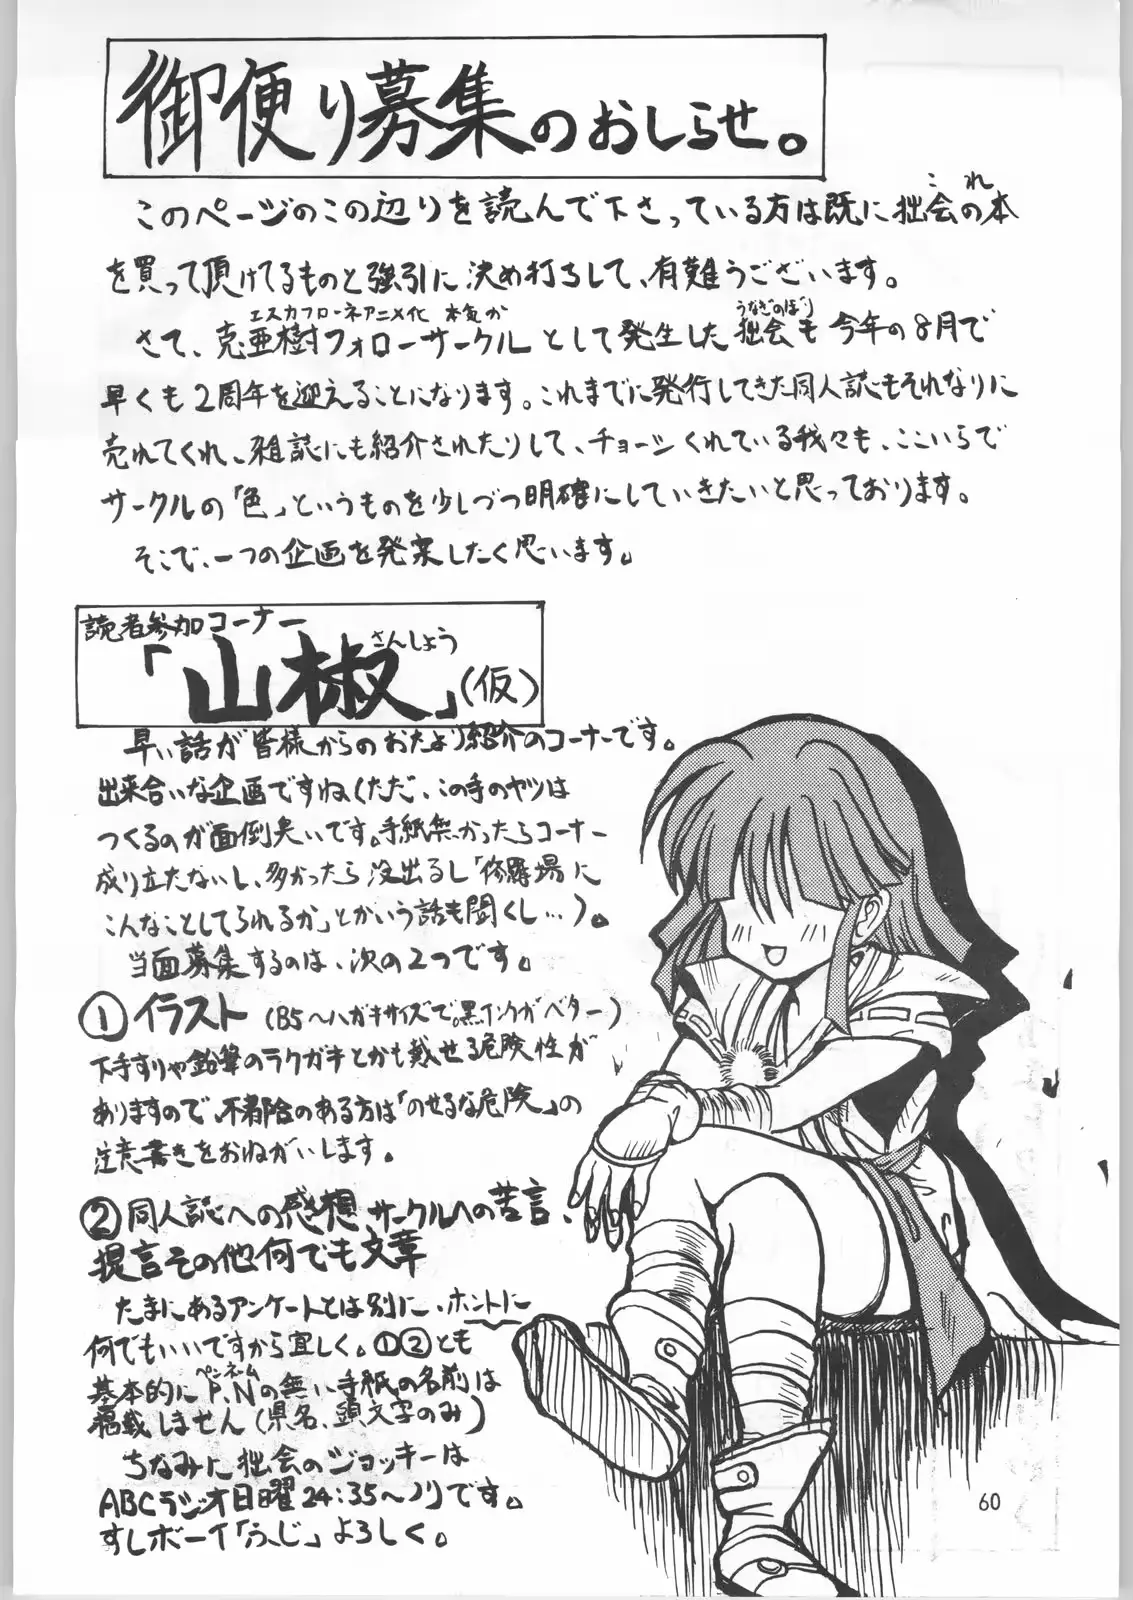 御便り募集のおしらせ。
このページのこの辺りを読んで下さっている方は既に拙会の本
これ
を買って頂けてるものと強引に決め打ちして、有難うございます。
エスカフローネアニメ化 本気か
うなぎのぼり
さて、克亜樹フォローサークルとして発生した拙会も今年の8月で
早くも2周年を迎えることになります。これまでに発行してきた同人誌もそれなりに
売れてくれ、雑誌にも紹介されたりして、チョーシくれている我々も、ここいらで
サークルの「色」というものを少しづつ明確にしていきたいと思っております。
そこで、一つの企画を発案したく思います。
読者参加コーナー
さんしょう
「山椒」(仮)
早い話が皆様からのおたより紹介のコーナーです。
出来合いな企画ですね(ただ、この手のヤツは
つくるのが面倒臭いです。手紙無かったらコーナー
成り立たないし、多かったら没出るし「修羅場に
こんなことしてられるか」とかいう話も聞くし…)。
当面募集するのは、次の2つです。
①イラスト(B5〜ハガキサイズで。黒インクがベター)
下手すりゃ鉛筆のラクガキとかも載せる危険性が
ありますので、不都合のある方は「のせるな危険」の
注意書きをおねがいします。
②同人誌への感想 サークルへの苦言、
提言その他何でも文章
たまにあるアンケートとは別に、ホントに
何でもいいですから宜しく。①②とも
ペンネーム
基本的にP.Nの無い手紙の名前は
掲載しません(県名、頭文字のみ)
ちなみに拙会のジョッキーは
ABCラジオ日曜24:35〜ノリです。
すしボーイ「ふじ」よろしく。
60